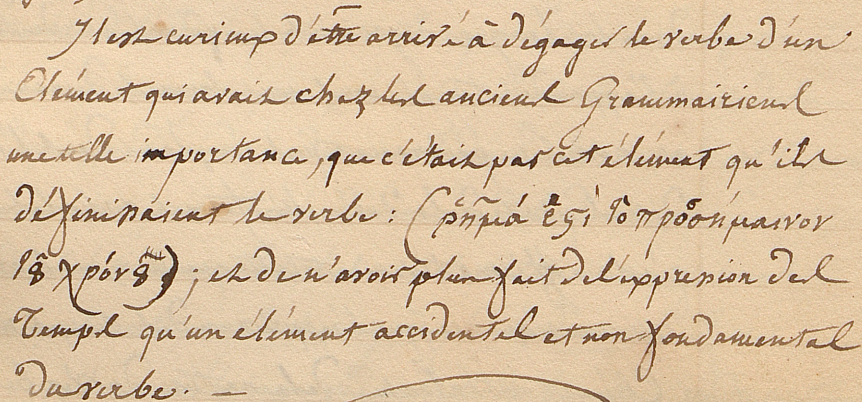 Il est curieux d'être arrivé à dégager le verbe d'un
Elément qui avait chez les anciens Grammairiens
une telle importance, que c'était par cet élément qu'ils
définissaient le verbe : (ῥῆμά ἐϛί τὸ προσήμαινον
τȣ̃ χρόνȣ) ; et de n'avoir plus fait de l'expression des
Temps qu'un élément accidentel et non fondamental
du verbe. —